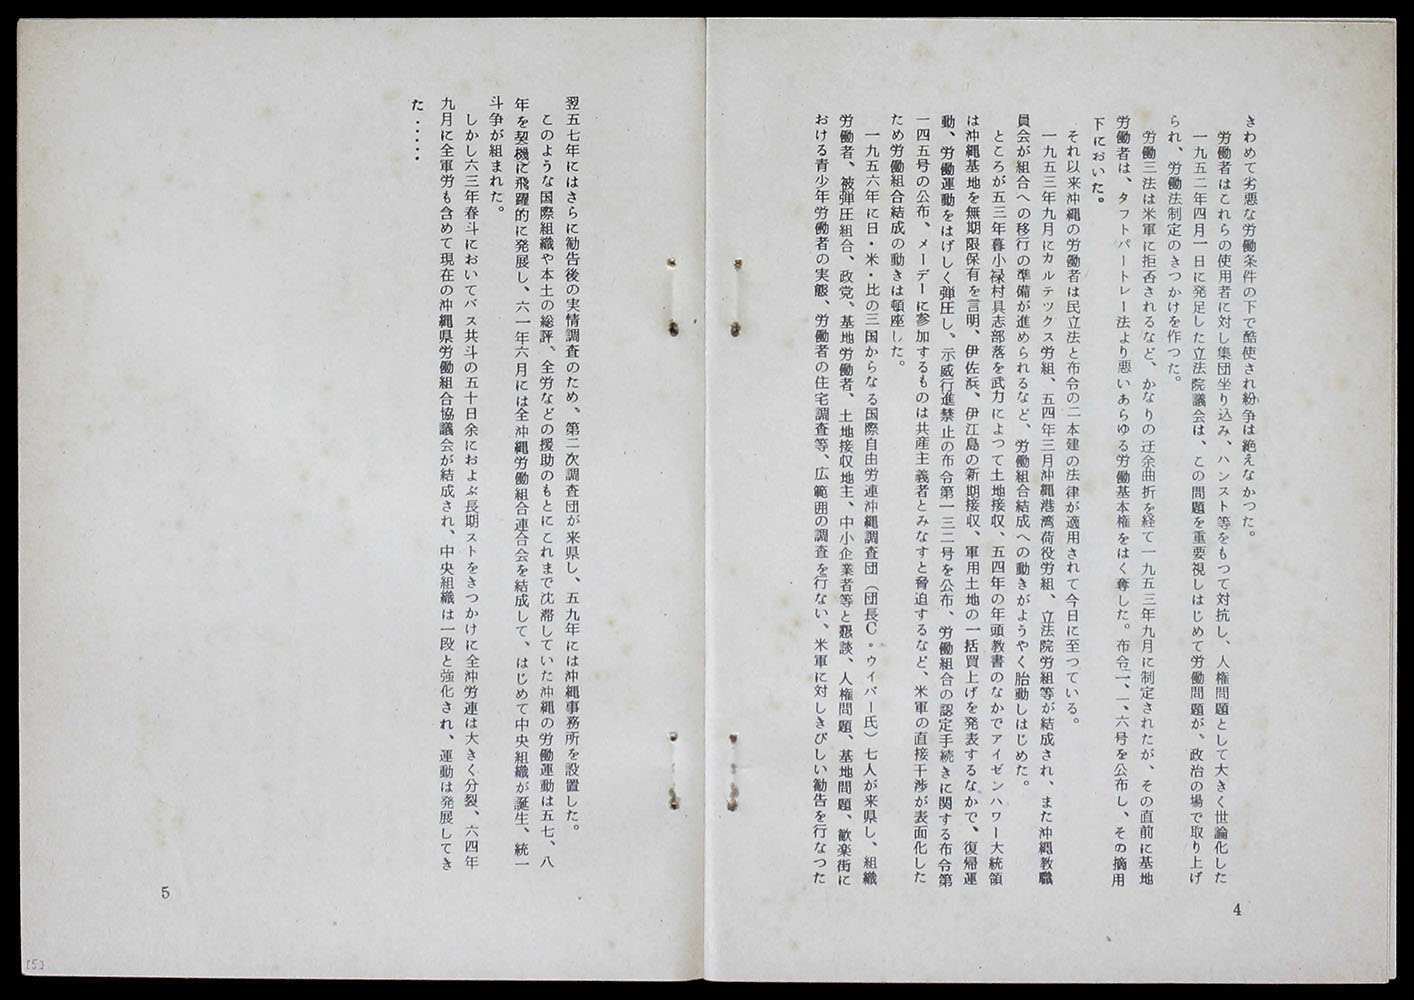 きわめて劣悪な労働条件の下で酷使され紛争は絶えなかつた。
労働者はこれらの使用者に対し集団坐り込み、ハンスト等をもつて対抗し、人権問題として大きく世論化した
一九五二年四月一日に発足した立法院議会は、この問題を重要視しはじめて労働問題が、政治の場で取り上げ
られ、労働法制定のきつかけを作つた。
労働三法は米軍に拒否されるなど、かなりの迂余曲折を経て一九五三年九月に制定されたが、その直前に基地
労働者は、タフトパートレー法より悪いあらゆる労働基本権をはく奪した。布令一、一、六号を公布し、その摘用
下においた。
それ以来沖縄の労働者は民立法と布令の二本建の法律が適用されて今日に至つている。
一九五三年九月にカルテツクス労組、五四年三月沖縄港湾荷役労組、立法院労組等が結成され、また沖縄教職
員会が組合への移行の準備が進められるなど、労働組合結成への動きがようやく胎動しはじめた。
ところが五三年暮小禄村具志部落を武力によつて土地接収、五四年の年頭教書のなかでアイゼンハワー大統領
は沖縄基地を無期限保有を言明、伊佐浜、伊江島の新期接収、軍用土地の一括買上げを発表するなかで、復帰運
動、労働運動をはげしく弾圧し、示威行進禁止の布令第一三二号を公布、労働組合の認定手続きに関する布令第
一四五号の公布、メーデーに参加するものは共産主義者とみなすと脅迫するなど、米軍の直接干渉が表面化した
ため労働組合結成の動きは頓座した。
一九五六年に日・米・比の三国からなる国際自由労連沖縄調査団（団長C・ウイバー氏）七人が来県し、組織
労働者、被弾圧組合、政党、基地労働者、土地接収地主、中小企業者等と懇談、人権問題、基地問題、歓楽街に
おける青少年労働者の実態、労働者の住宅調査等、広範囲の調査を行ない、米軍に対しきびしい勧告を行なつた
4
翌五七年にはさらに勧告後の実情調査のため、第二次調査団が来県し、五九年には沖縄事務所を設置した。
このような国際組織や本土の総評、全労などの援助のもとにこれまで沈滞していた沖縄の労働運動は五七、八
年を契機に飛躍的に発展し、六一年六月には全沖縄労働組合連合会を結成して、はじめて中央組織が誕生、統一
斗争が組まれた。
しかし六三年春斗においてバス共斗の五十日余におよぶ長期ストをきつかけに全沖労連は大きく分裂、六四年
九月に全軍労も含めて現在の沖縄県労働組合協議会が結成され、中央組織は一段と強化され、運動は発展してき
た・・・・・
5
[5]